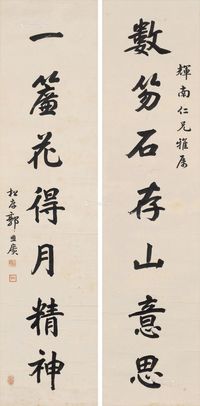 輝南仁兄雅屬
數笏石存山意思
一簾花得月精神
松 郭 廣